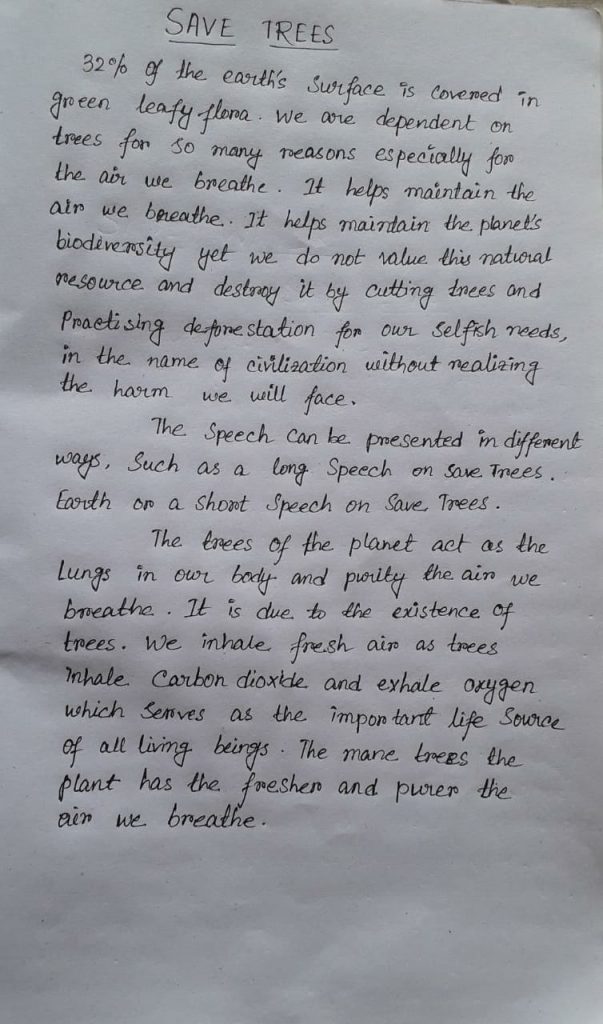 SAVE TREES
32% of the earth's surface is covered in
green leafy flora. We are dependent on
trees for so many reasons especially for
the air we breathe. It helps maintain the
air we breathe. It helps maintain the planet's
biodiversity yet we do not value this natural
resource and destroy it by cutting trees and
Practising deforestation for our selfish needs,
in the name of civilization without realizing
the harm we will face.
The Speech can be presented in different
ways, Such as a long Speech on Save Trees.
Earth or a Short Speech on Save Trees.
The trees of the planet act as the
Lungs in our body and purity the air we
breathe. It is due to the existence of
trees. We inhale fresh air as trees
Inhale Carbon dioxide and exhale oxygen
which Serves as the important life Source
of all living beings. The mane trees the
plant has the fresher and purer the
air we breathe.